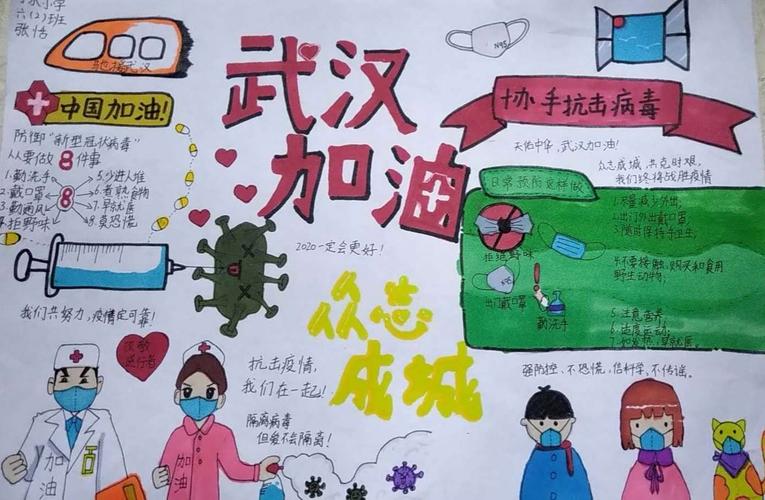 六(2)班
张恬
驰援武汉
中国加油!
防御“新型冠状病毒”
人要做8件事
1.勤洗手
2.戴口罩
3.勤通风
4.拒野味
8
5.少进人堆
6.煮熟食物
7.早就医
8.莫恐慌
武汉
加油
N95
协手抗击病毒
天佑中华,武汉加油!
众志成城,共克时艰,
我们终将战胜疫情
日常预防怎样做
1.尽量减少外出,
2.出门外出戴口罩
3.随时保持手卫生,
4.不要接触、购买和食用
野生动物,
5.注意营养,
6.适度运动,
7.如发热,早就医。
拒绝野味
出门戴口罩
勤洗手
2020一定会更好!
我们共努力,疫情定可靠!
众志
成城
致敬
逆行者
抗击疫情,
我们在一起!
隔离病毒
但爱不会隔离!
强防控、不恐慌,信科学,不传谣。
加
油
加
油